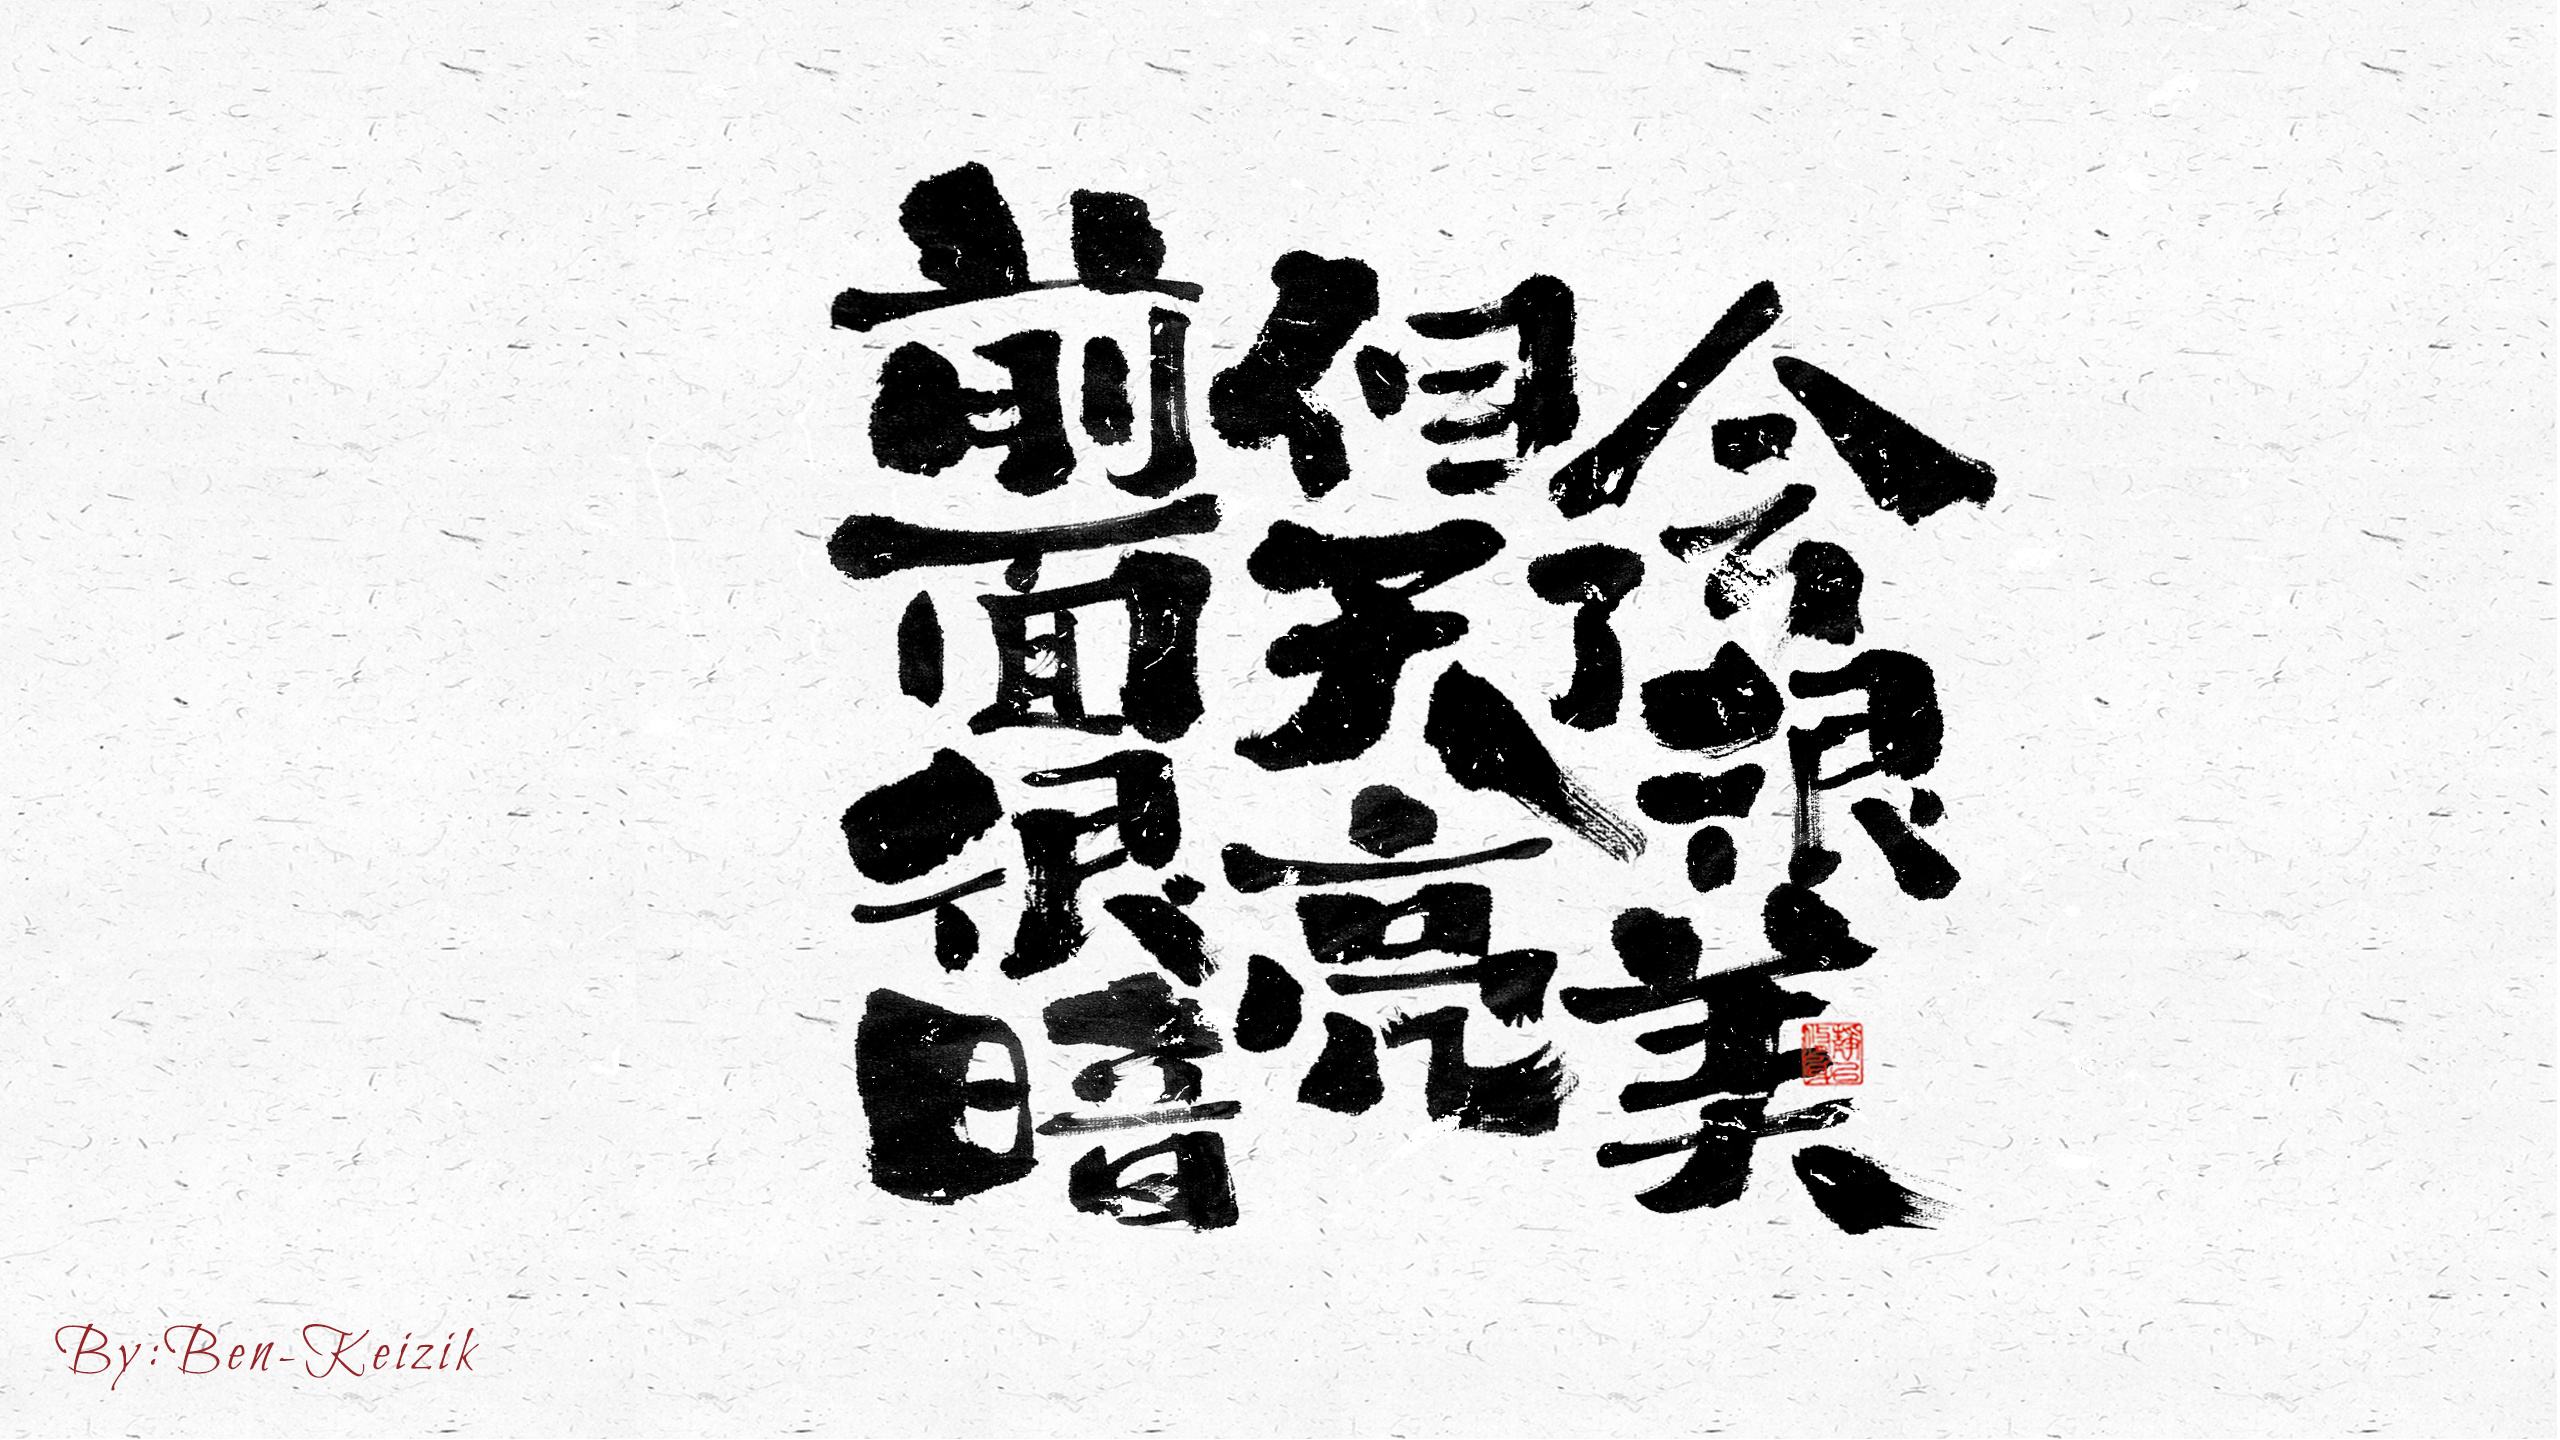 前面很暗
但天亮了
会很美
By:Ben-Keizik